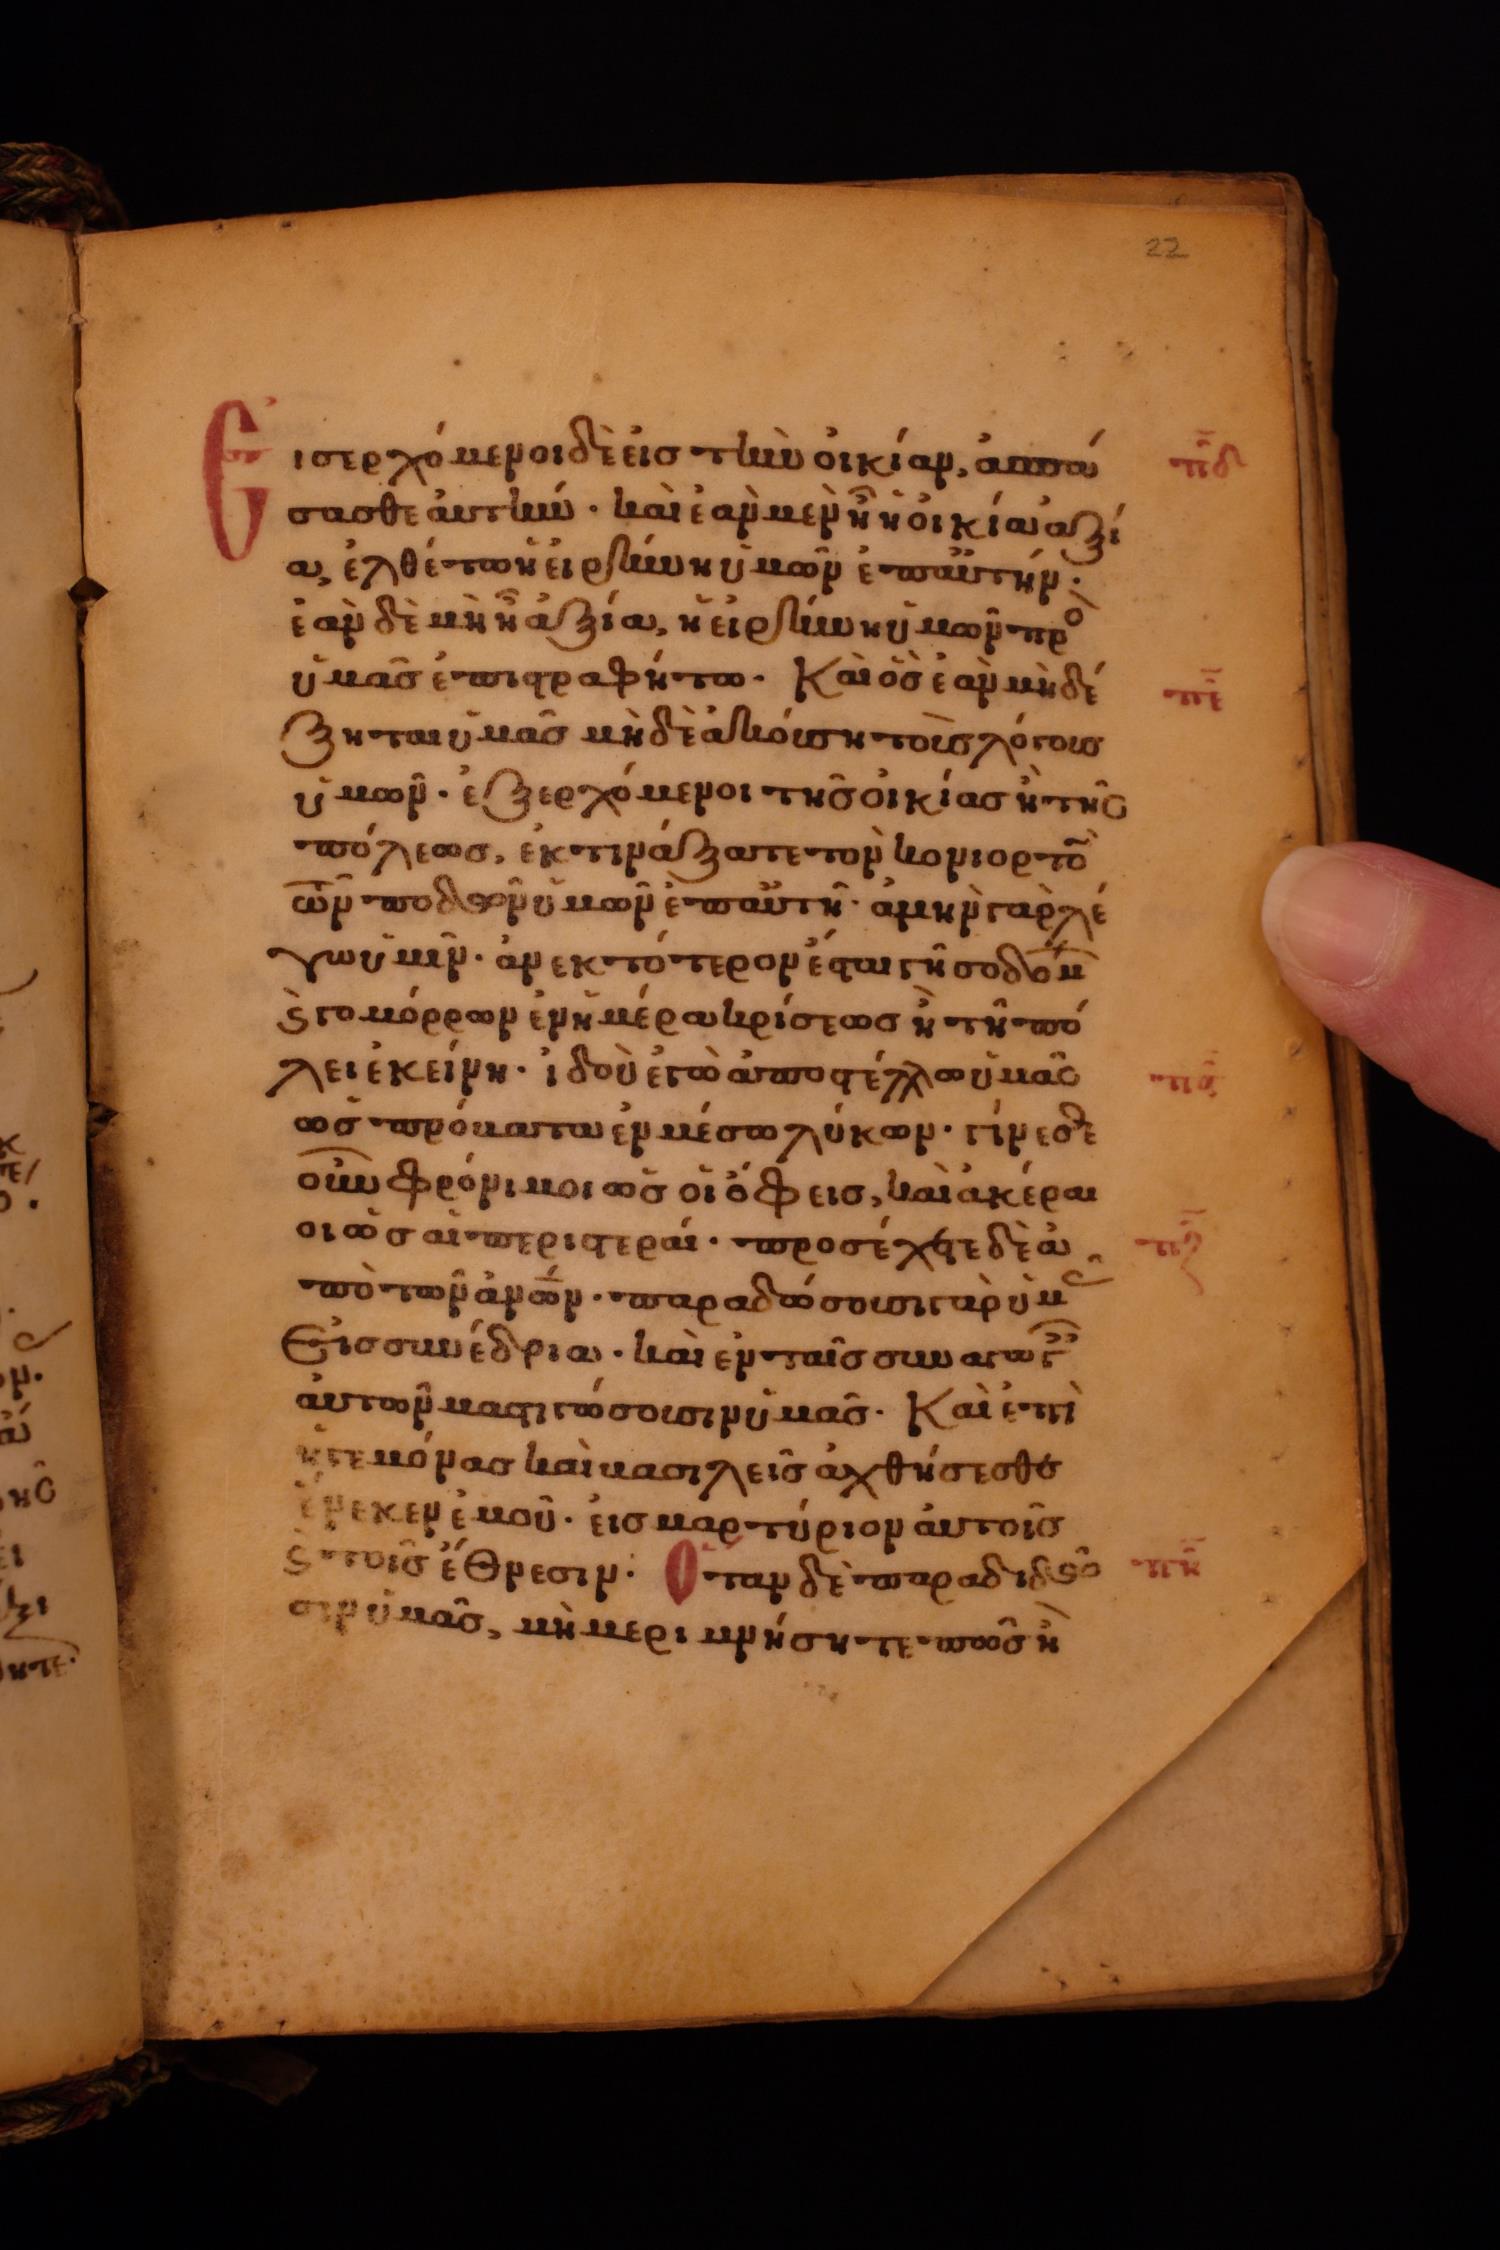 22
Εἰσερχόμενοι δὲ εἰς τὴν οἰκίαν, ἀσπά πδ
σασθε ἀυτήν · καὶ ἐὰν μὲν ἦ ἡ οἰκία ἀξί
α, ἐλθέτω ἡ εἰρήνη ὑμῶν ἐπ αὐτήν ·
ἐὰν δὲ μὴ ἦ ἀξία, ἡ εἰρήνη ὑμῶν πρὸ
ὑμᾶς ἐπιστραφήτω · Καὶ ὃς ἐὰν μὴ δέ πε
ξηται ὑμᾶς μὴ δὲ ἀκούση τοὺς λόγους
ὑμῶν · ἐξερχόμενοι τῆς οἰκίας ἢ τῆς
πόλεως, ἐκτινάξατε τὸν κονιορτὸ
τῶν ποδῶν ὑμῶν ἐπ αὐτῆ · ἀμὴν γὰρ λέ
γω ὑμῖν · ἀνεκτότερον ἔσται γῆ σοδόμ
ϛ γομόρρων ἐν ἡμέρα κρίσεως ἢ τῆ πό
λει ἐκείνη · ἰδοὺ ἐγὼ ἀποστέλλω ὑμᾶς
ὡς πρόβατα ἐν μέσω λύκων · γίνεσθε
οὖν φρόνιμοι ὡς οἱ ὄφεις, καὶ ἀκέραι
οι ὡς αἱ περιστεραί · προσέχετε δὲ ἀ πζ
πὸ τῶν ἀνῶν · παραδώσουσι γὰρ ὑμ
εἰς συνέδρια · καὶ ἐν ταῖς συναγωγ
ἀυτῶν μαστιγώσουσιν ὑμᾶς · Καὶ ἐπὶ
ἡγεμόνας καὶ βασιλεῖς ἀχθήσεσθε
ἕνεκεν ἐμοῦ · εἰς μαρτύριον ἀυτοῖς
ϛ τοῖς ἔθνεσιν : Ὅταν δὲ παραδιδῶ πη
σιν ὑμᾶς, μὴ μεριμνήσητε πῶς ἢ